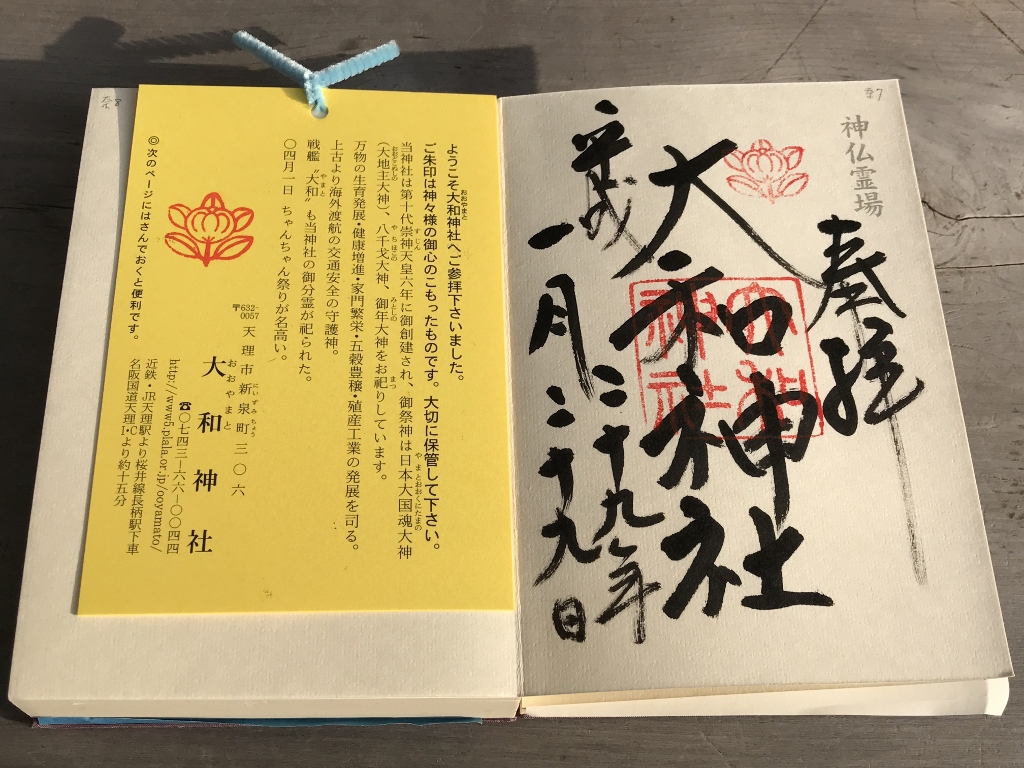 奈7
神仏霊場
奉拝
大和神社
大和神社
平成二十九年
一月二十九日
ようこそ大和神社へご参拝下さいました。
おおやまと
ご朱印は神々様の御心のこもったものです。大切に保管して下さい。
当神社は第十代崇神天皇六年に御創建され、御祭神は日本大国魂大神
すじん
やまとおおくにたまの
(大地主大神)、八千戈大神、御年大神をお祀りしています。
おおとこぬしの
やちほこの
みとしの
まつ
万物の生育発展・健康増進・家門繁栄・五穀豊穣・殖産工業の発展を司る。
上古より海外渡航の交通安全の守護神。
戦艦〝大和〟も当神社の御分霊が祀られた。
やまと
〇四月一日 ちゃんちゃん祭りが名高い。
〒632-0057 天理市新泉町三〇六
にいずみちょう
大和神社
おおやまと
☎〇七四三−六六−〇〇四四
http://www5.plala.or.jp/ooyamato/
近鉄・JR天理駅より桜井線長柄駅下車
名阪国道天理I・Cより約十五分
◎次のページにはさんでおくと便利です。
奈8